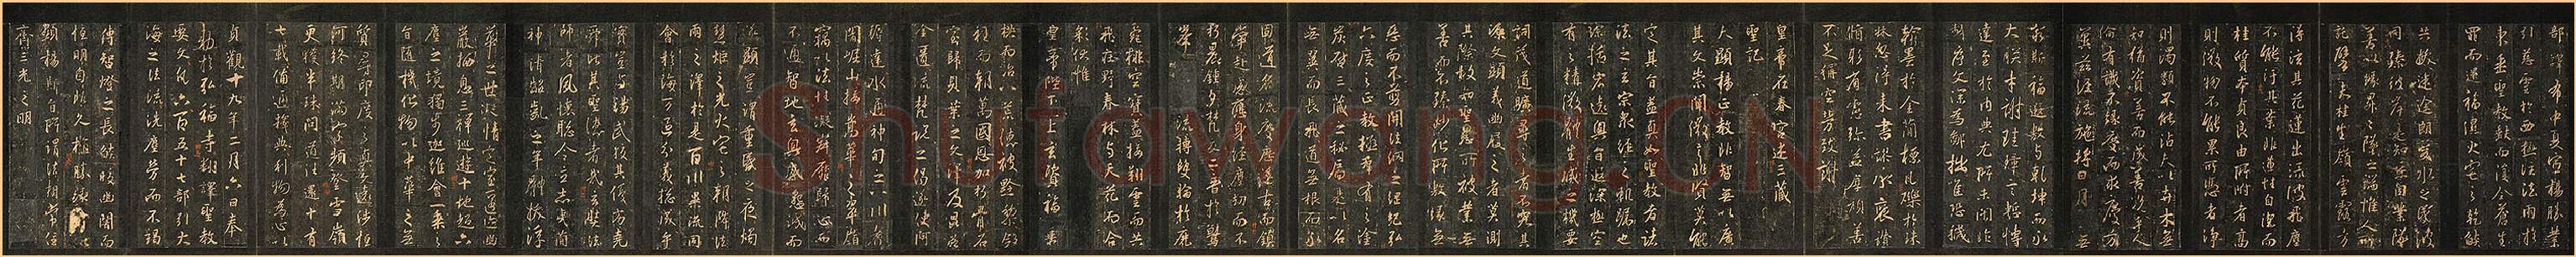 部譯布中夏宣揚勝業
引慈雲於西極注法雨於
東垂聖教缺而復全蒼生
罪而還福濕火宅之乾燄
共拔迷途朗愛水之昏波
同臻彼岸是知惡因業墜
善以緣昇昇墜之端惟人所
託譬夫桂生高嶺雲露方
得泫其花蓮出淥波飛塵
不能汙其葉非蓮性自潔而
桂質本貞良由所附者高
則微物不能累所憑者淨
則濁類不能沾夫以卉木無
知猶資善而成善況乎人
倫有識不緣慶而求慶方
冀茲經流施將日月而無
窮斯福遐敷與乾坤而永
大朕才謝珪璋言慙博
達至於內典尤所未閑昨
制序文深為鄙拙唯恐穢
翰墨於金簡標瓦礫於珠
林忽得來書謬承褒讚
循躬省慮彌益厚顏善
不足稱空勞致謝
皇帝在春宮述三藏
聖記
夫顯揚正教非智無以廣
其文崇闡微言非賢莫能
定其旨蓋真如聖教者諸
法之玄宗眾經之軌躅也
綜括宏遠奧旨遐深極空
有之精微體生滅之機要
詞茂道曠尋之者不究其
源文顯義幽履之者莫測
其際故知聖慈所被業無
善而不臻妙化所敷緣無
惡而不翦開法網之綱紀弘
六度之正教拯群有之塗
炭啟三藏之秘扃是以名
無翼而長飛道無根而永
固道名流慶歷遂古而鎮
常赴感應身經塵劫而不
朽晨鐘夕梵交二音於鷲
峯慧日法流轉雙輪於鹿
苑排空寶蓋接翔雲而共
飛莊野春林與天花而合
彩伏惟
皇帝陛下上玄資福垂
拱而治八荒德被黔黎斂
衽而朝萬國恩加朽骨石
室歸貝葉之文澤及昆蟲
金匱流梵說之偈遂使阿
耨達水通神甸之八川耆
闍崛山接嵩華之翠嶺
竊以法性凝寂靡歸心而
不通智地玄奧感懇誠而
遂顯豈謂重昏之夜燭
慧炬之光火宅之朝降法
雨之澤於是百川異流同
會於海萬區分義總成乎
實豈與湯武校其優劣堯
舜比其聖德者哉玄奘法
師者夙懷聰令立志夷簡
神清齠齔之年體拔浮
華之世凝情定室匿迹幽
巖栖息三禪巡遊十地超六
塵之境獨步迦維會一乘之
旨隨機化物以中華之無
質尋印度之真文遠涉恒
河終期滿字頻登雪嶺
更獲半珠問道往還十有
七載備通釋典利物為心以
貞觀十九年二月六日奉
勅於弘福寺翻譯聖教
要文凡六百五十七部引大
海之法流洗塵勞而不竭
傳智燈之長燄皎幽闇而
恒明自非久植勝緣何以
顯揚斯旨所謂法相常住
齊三光之明
Shufawang.CN